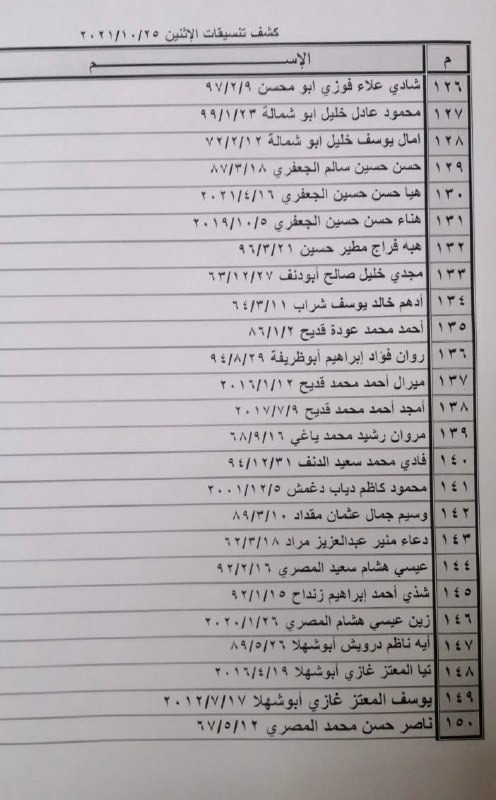 كشف تنسيقات الإثنين ٢٠٢١/١٠/٢٥
م الإســـم
١٢٦ شادي علاء فوزي ابو محسن ٩٧/٢/٩
١٢٧ محمود عادل خليل ابو شمالة ٩٩/١/٢٣
١٢٨ امال يوسف خليل ابو شمالة ٧٢/٢/١٢
١٢٩ حسن حسين سالم الجعفري ٨٧/٣/١٨
١٣٠ هيا حسن حسين الجعفري ٢٠٢١/٤/١٦
١٣١ هناء حسن حسين الجعفري ٢٠١٩/١٠/٥
١٣٢ هبه فراج مطير حسين ٩٦/٣/٢١
١٣٣ مجدي خليل صالح أبودنف ٦٣/١٢/٢٧
١٣٤ أدهم خالد يوسف شراب ٦٤/٣/١١
١٣٥ أحمد محمد عودة قديح ٨٦/١/٢
١٣٦ روان فؤاد إبراهيم أبوظريفة ٩٤/٨/٢٩
١٣٧ ميرال أحمد محمد قديح ٢٠١٦/١/١٢
١٣٨ أمجد أحمد محمد قديح ٢٠١٧/٧/٩
١٣٩ مروان رشيد محمد ياغي ٦٨/٩/١٦
١٤٠ فادي محمد سعيد الدنف ٩٤/١٢/٣١
١٤١ محمود كاظم دياب دغمش ٢٠٠١/١٢/٥
١٤٢ وسيم جمال عثمان مقداد ٨٩/٣/١٠
١٤٣ دعاء منير عبدالعزيز مراد ٦٢/٣/١٨
١٤٤ عيسي هشام سعيد المصري ٩٢/٢/١٦
١٤٥ شذي أحمد إبراهيم زنداح ٩٢/١/١٥
١٤٦ زين عيسي هشام المصري ٢٠٢٠/١/٢٦
١٤٧ أيه ناظم درويش أبوشهلا ٨٩/٥/٢٦
١٤٨ تيا المعتز غازي أبوشهلا ٢٠١٦/٤/١٩
١٤٩ يوسف المعتز غازي أبوشهلا ٢٠١٢/٧/١٧
١٥٠ ناصر حسن محمد المصري ٦٧/٥/١٢